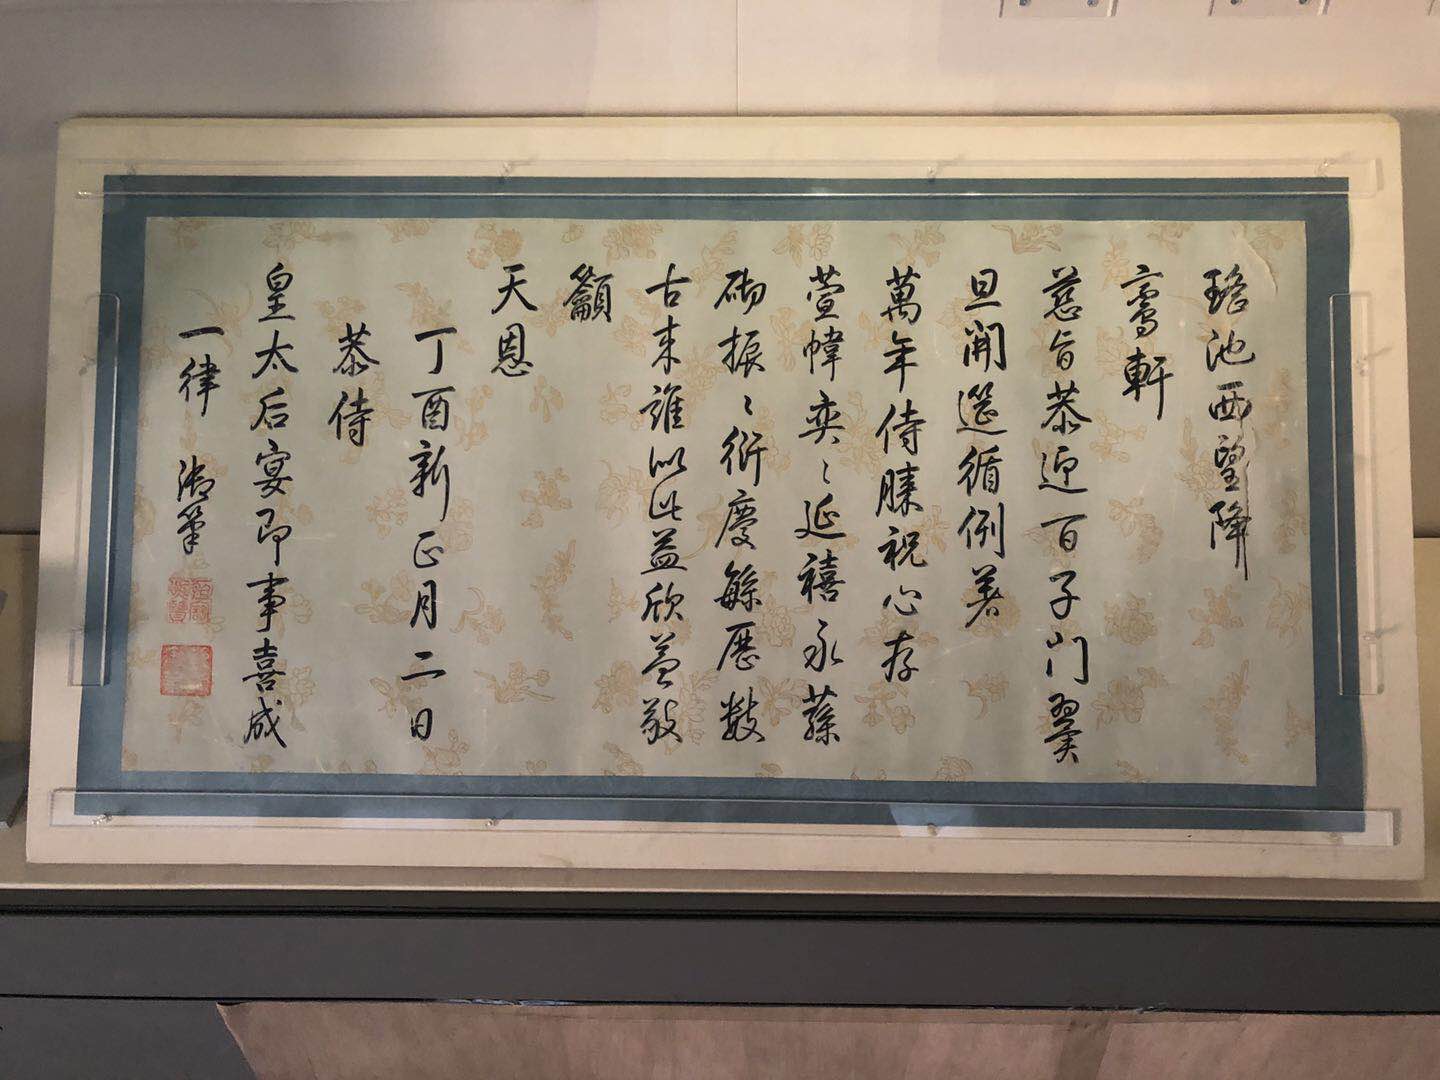 瑤池西望降
鸞軒
慈旨恭迎百子門翼
旦開筵循例著
萬年侍膝祝心存
萱幃奕〻延禧永蓀
砌振〻衍慶緜歷數
古来誰似此益欣益敬
籲
天恩
丁酉新正月二日
恭侍
皇太后宴即事喜成
一律 御筆